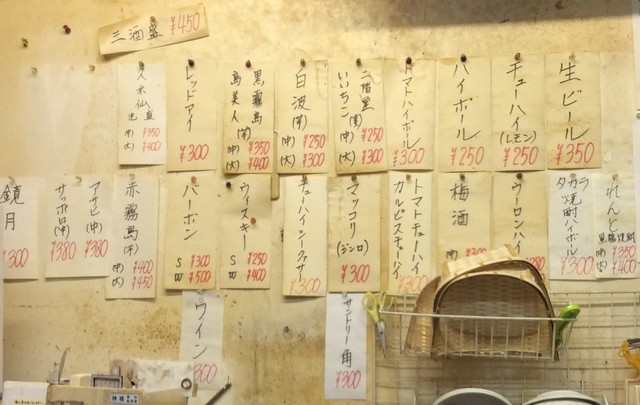 三酒盛 ¥450
生ビール
¥350
チューハイ
(レモン)
¥250
ハイボール
¥250
トマトハイボール
¥300
二階堂(麦)
いいちこ
(中)¥250
(大)¥300
白波(芋)
(中)¥250
(大)¥300
黒霧島
島美人(芋)
(中)¥350
(大)¥400
レッドアイ
¥300
久米仙
(中)¥350
(大)¥400
れんと
黒糖焼酎
(中)¥350
(大)¥400
タカラ
焼酎ハイボール
¥300
ウーロンハイ
梅酒
トマトチューハイ
カルピスチューハイ
¥300
マッコリ
(ジンロ)
¥300
チューハイシークヮサー
¥300
ウィスキー
S ¥250
W ¥400
バーボン
S ¥300
W ¥500
赤霧島(芋)
(中)¥400
(大)¥450
アサヒ(中)
¥380
サッポロ(中)
¥380
鏡月
¥300
サントリー角
¥300
ワイン